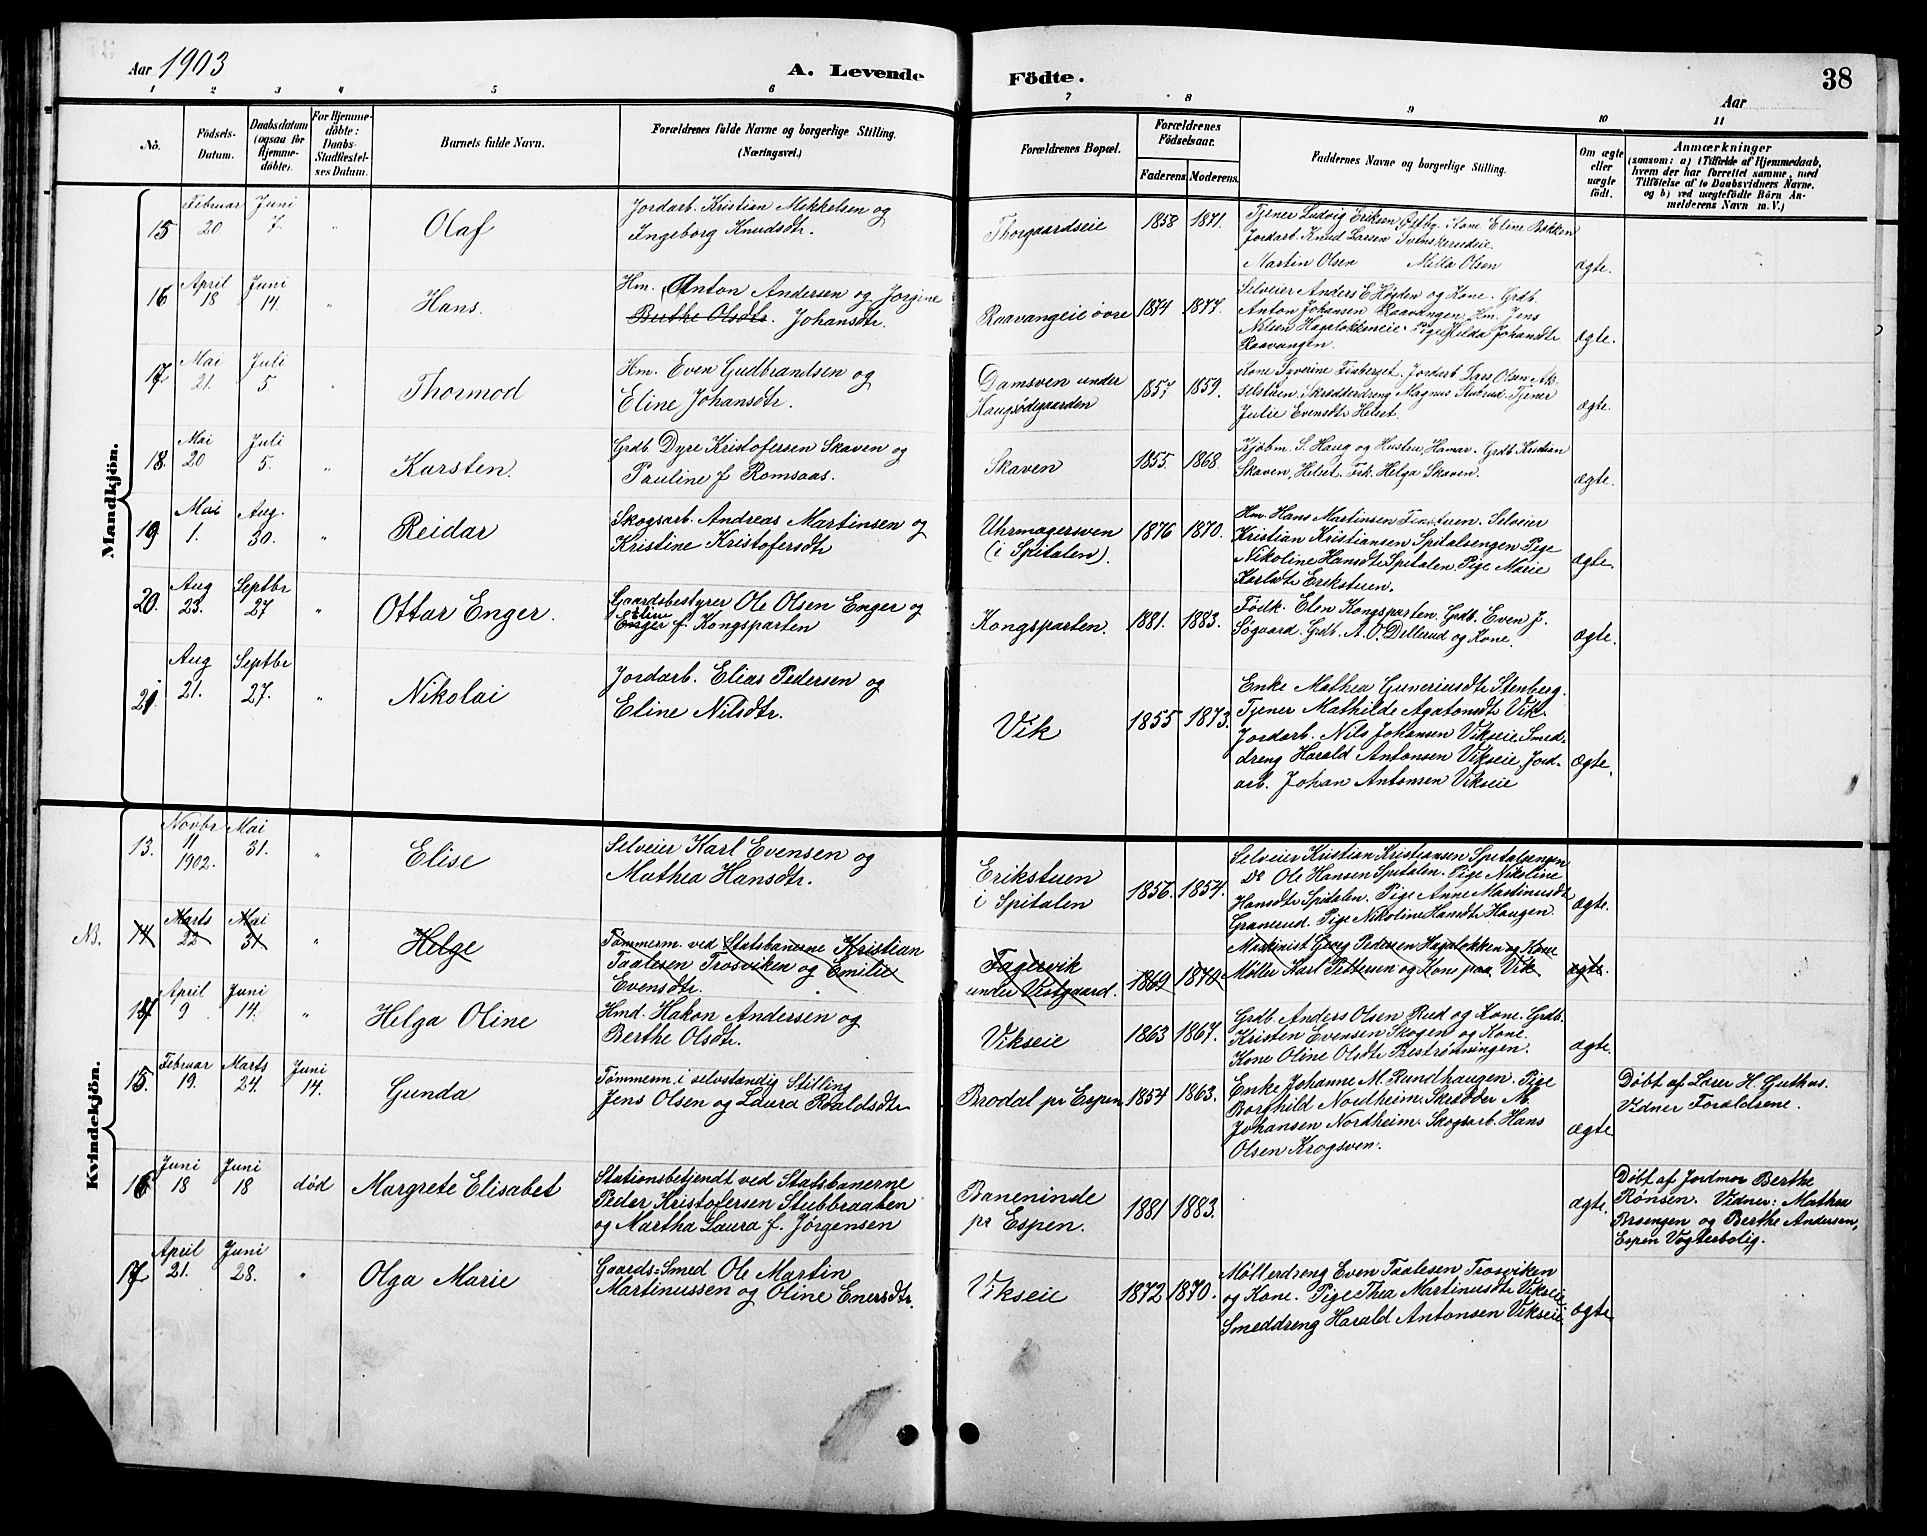 Aar 1903
A. Levende Födte.
38
Aar
1 2 3 4 5 6 7 8 9 10 11
No.
Födsels-Datum.
Daabsdatum (ogsaa for Hjemmedöbte).
For Hjemmedöbte: Daabs-Stadfæstelses Datum.
Barnets fulde Navn.
Forældrenes fulde Navne og borgerlige Stilling. (Næringsvei.)
Forældrenes Bopæl.
Forældrenes Födselsaar.
Faderens. Moderens.
Faddernes Navne og borgerlige Stilling.
Om ægte eller uægte födt.
Anmærkninger
(saasom: a) i Tilfælde af Hjemmedaab,
hvem der har forrettet samme, med
Tilföielse af to Daabsvidners Navne.
og b) ved uægtefödte Börn An-
melderens Navn m. V.)
Mandkjön.
15 Februar 20 Juni 7. " Olaf
Jordarb. Kristian Mikkelsen og
Ingeborg Knudsdtr.
Thorgaardseie 1858 1871.
Tjener Ludvig Eriksen Østby. Kone Eline Bakken
Jordarb. Knud Larsen Svenskerudeie.
Martin Olsen Milla Olsen
ægte.
16 April 18 Juni 14. " Hans.
Hm. Anton Andersen og Jorgine
Berthe Olsdtr. Johansdtr.
Raavangeie øvre 1874 1877.
Selveier Anders E Høgden og Kone. Grdb.
Anton Johansen Raavangen. Hm. Jens
Nilsen Hagelokkeneie. Pige Hilda Johansdtr
Raavangen.
ægte.
17 Mai 21. Juli 5 " Thormod
Hm. Even Gudbrandsen og
Eline Johansdtr.
Damsven under
Haugsødegaarden
1857 1859.
Kone Syverine Finberget. Jordarb Lars Olsen Ak-
selstuen. Skrædderdreng Magnus Stubrud. Tjener
Julie Evensdtr Helset.
ægte.
18. Mai 20 Juli 5. " Karsten.
Grdb. Dyre Kristofersen Skaven og
Pauline f Romsaas.
Skaven 1855. 1868.
Kjøbm. S. Haug og Hustru, Hamar. Grdb Kristian
Skaven, Helset. Frk. Helga Skaven.
ægte.
19 Mai 1. Aug. 30. " Reidar
Skogsarb. Andreas Martinsen og
Kristine Kristofersdtr
Uhrmagersven
(i Spitalen).
1876 1870.
Hm. Hans Martinsen Finstuen. Selveier
Kristian Kristiansen Spitalsengen Pige
Nikoline Hansdtr Spitalen. Pige Marie
Karlsdtr Erikstuen.
ægte.
20. Aug 23. Septbr 27 " Ottar Enger.
Gaardsbestyrer Ole Olsen Enger og
Enger f. Kongsparten
Kongsparten. 1881. 1883.
Fødk. Elen Kongsparten. Grdb. Even J.
Søgaard. Grdb. A. O. Dellerud og Kone.
ægte.
21. Aug 21. Septbr 27. " Nikolai
Jordarb. Elias Pedersen og
Eline Nilsdtr.
Vik 1855 1873.
Enke Mathea Guneriusdtr Stenberg.
Tjener Mathilde Agatonsdtr Vik.
Jordarb. Nils Johansen Vikseie. Smed-
dreng Harald Antonsen Vikseie. Jord-
arb. Johan Antonsen Vikseie
ægte.
Kvindekjön.
13. Novbr 11 1902. Mai 31. " Elise
Selveier Karl Evensen og
Mathea Hansdtr.
Erikstuen
i Spitalen
1856. 1854.
Selveier Kristian Kristiansen Spitalsengen
Do Ole Hansen Spitalen. Pige Nikoline
Hansdtr Spitalen. Pige Anne Martinusdtr
Granerud. Pige Nikoline Hansdtr Haugen.
ægte.
NB. 14 Marts 22 Mai 31 " Helge
Tømmerm. ved Statsbanerne Kristian
Taalesen Trosviken og Emilie
Evensdtr.
Fagervik
under Vestgaard.
1869 1879
Maskinist Georg Pedersen Hagelokken og Kone
Møller Karl Pettersen og Kone paa Vik
ægte.
14 April 9 Juni 14. " Helga Oline
Hmd. Hakon Andersen og
Berthe Olsdtr.
Vikseie 1863 1867.
Grdb. Anders Olsen Rud og Kone. Grdb.
Kristen Evensen Skogen og Kone.
Kone Oline Olsdtr Prestrønningen.
ægte.
15. Februar 19. Marts 24. Juni 14. Gunda
Tømmerm. i selvstændig Stilling
Jens Olsen og Laura Roaldsdtr
Brodal pr Espen 1854 1863.
Enke Johanne M. Rundhaugen. Pige
Borghild Nordheim. Skrædder M.
Johansen Nordheim. Skogsarb. Hans
Olsen Krogsven.
ægte
Døbt af Lærer H. Guthus.
Vidner Forældrene.
16 Juni 18 Juni 18 død Margrete Elisabet
Stationsbetjendt ved Statsbanerne
Peder Kristofersen Stubbraaten
og Martha Laura f. Jørgensen
Baneninde
pr Espen.
1881 1883.
ægte.
Døbt af Jordmor Berthe
Rønsen. Vidner: Mathea
Brsengen og Berthe Andersen,
Espen Vogterbolig.
17 April 21. Juni 28. " Olga Marie
Gaards-Smed Ole Martin
Martinussen og Oline Enersdtr.
Vikseie 1872 1870.
Møllerdreng Even Taalesen Trosviken
og Kone. Pige Thea Martinusdtr Vikseie.
Smeddreng Harald Antonsen Vikseie.
ægte